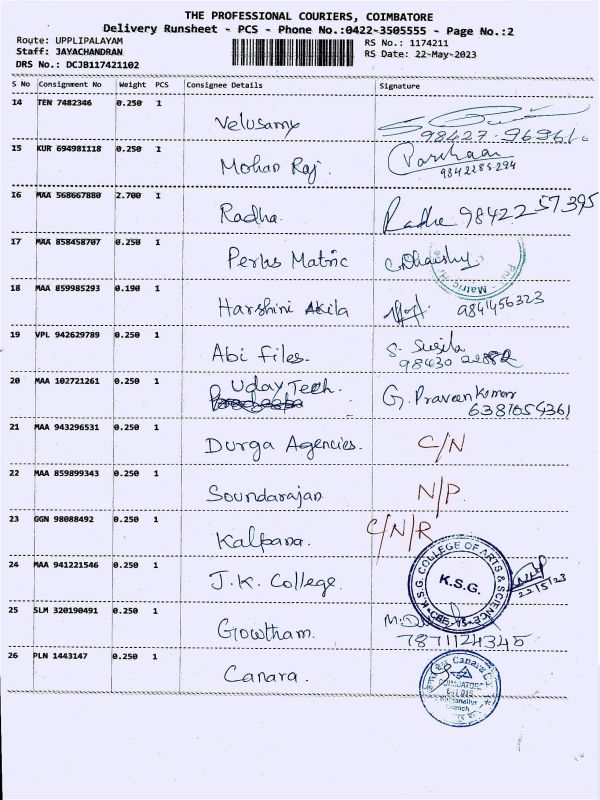 THE PROFESSIONAL COURIERS, COIMBATORE
Delivery Runsheet - PCS - Phone No.:0422-3505555 - Page No.:2
Route: UPPLIPALAYAM
Staff: JAYACHANDRAN
DRS No.: DCJB117421102
RS No.: 1174211
RS Date: 22-May-2023
S No Consignment No Weight PCS Consignee Details Signature
14 TEN 7482346 0.250 1 Velusamy 98427-96961
15 KUR 694981118 0.250 1 Mohan Raj. 9842285294
16 MAA 568667880 2.700 1 Radha. Radha 9842257395
17 MAA 858458707 0.250 1 Perks Matric
Matric
18 MAA 859985293 0.190 1 Harshini Akila 9841456323
19 VPL 942629789 0.250 1 Abi Files. S. Susila
98430
20 MAA 102721261 0.250 1 Uday Tech. G. Praveen Kumar
6381054361
21 MAA 943296531 0.250 1 Durga Agencies. C/N
22 MAA 859899343 0.250 1 Soundarajan N/P.
23 GGN 98088492 0.250 1 Kalpana. C/N/R
24 MAA 941221546 0.250 1 J.K. College.
K.S.G. COLLEGE OF ARTS & SCIENCE
K.S.G.
22/5/23
25 SLM 320190491 0.250 1 Gowtham. 7871124345
26 PLN 1443147 0.250 1 Canara.
Canara
COIMBATORE
Branch